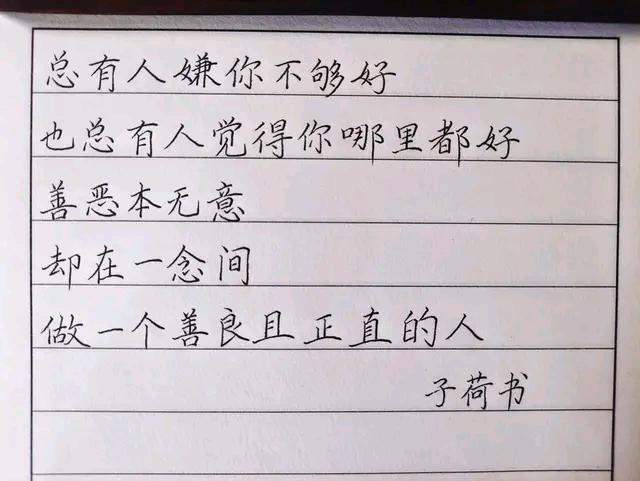 总有人嫌你不够好
也总有人觉得你哪里都好
善恶本无意
却在一念间
做一个善良且正直的人
子荷书